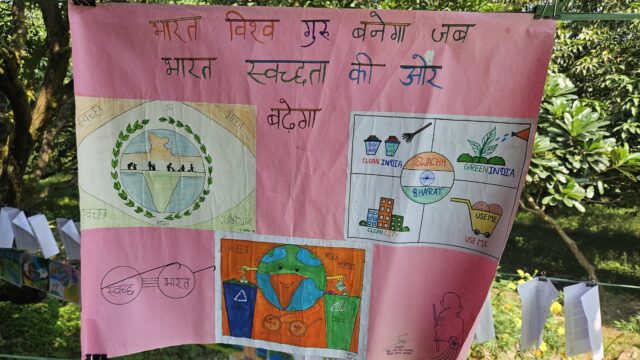 भारत विश्व गुरु बनेगा जब
भारत स्वच्छता की ओर
बढेगा
स्वच्छ
भारत
स्वच्छ
CLEAN INDIA
GREEN INDIA
SWACHH
BHARAT
CLEAN
USE ME
USE ME
स्वच्छ
भारत